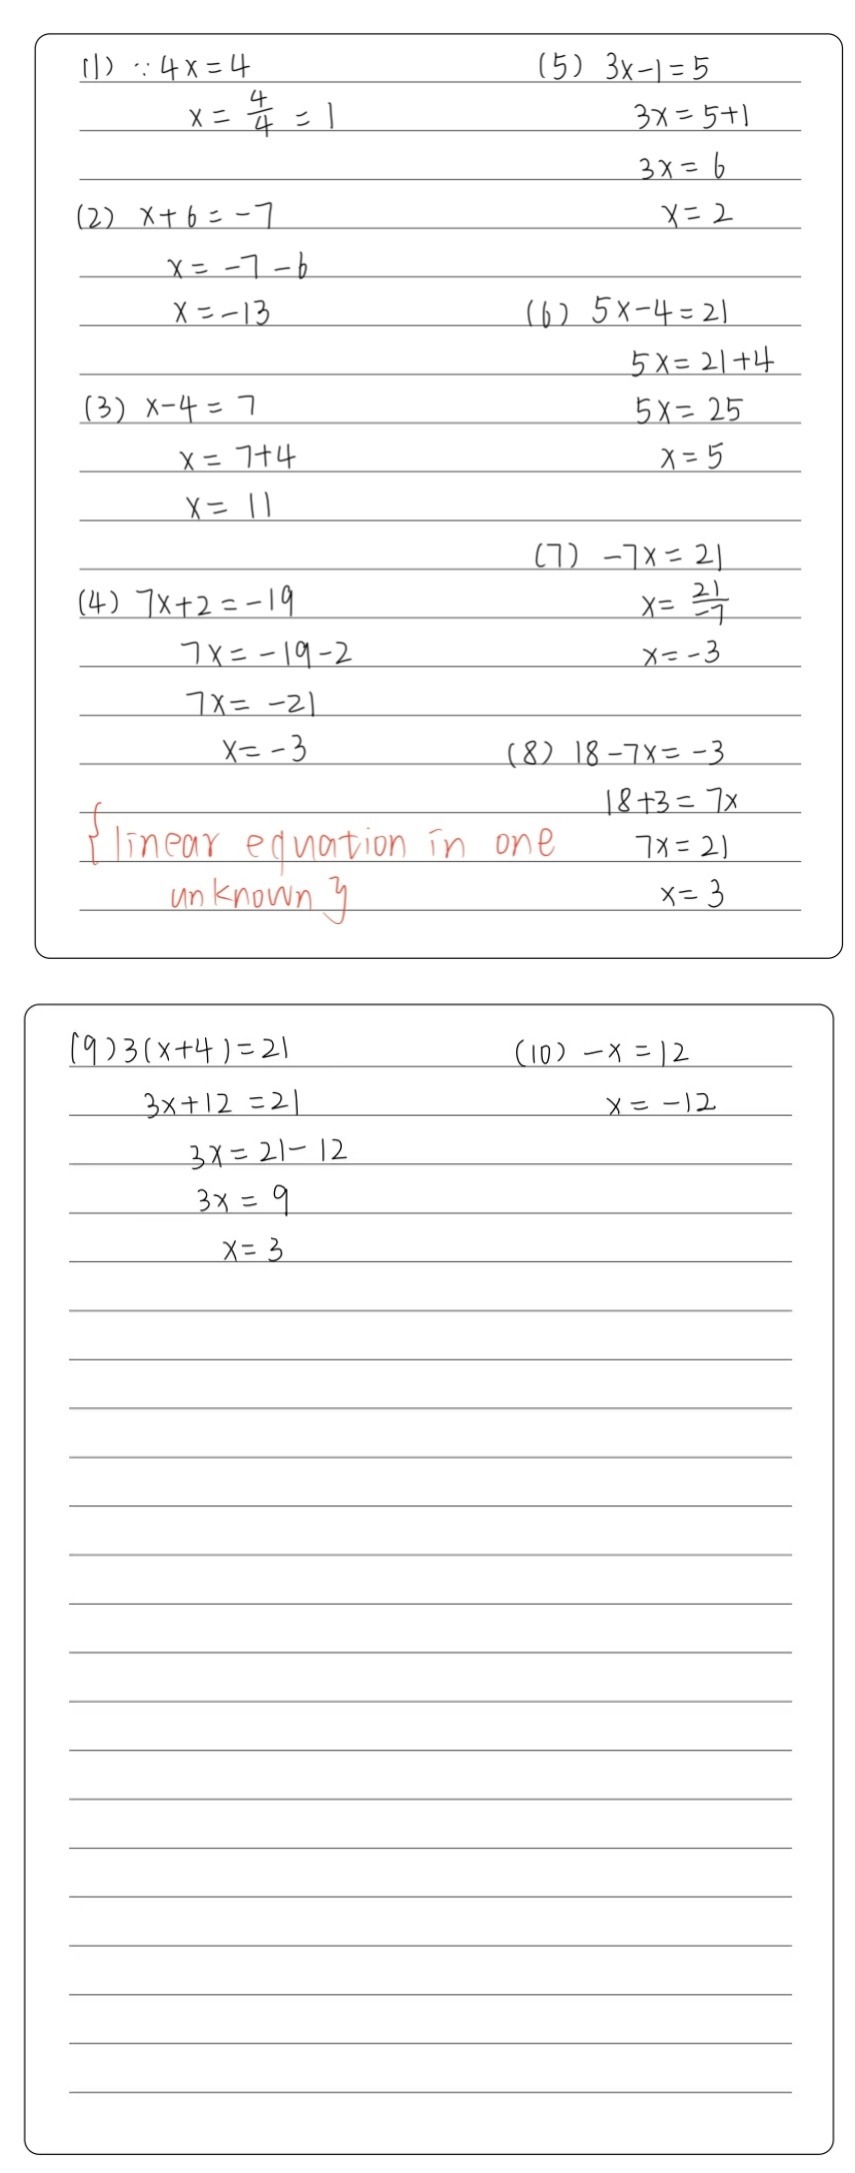 (1) ∵ 4x = 4
x = 4/4 = 1
(2) x + 6 = -7
x = -7 - 6
x = -13
(3) x - 4 = 7
x = 7 + 4
x = 11
(4) 7x + 2 = -19
7x = -19 - 2
7x = -21
x = -3
{linear equation in one
unknown}
(5) 3x - 1 = 5
3x = 5 + 1
3x = 6
x = 2
(6) 5x - 4 = 21
5x = 21 + 4
5x = 25
x = 5
(7) -7x = 21
x = 21/-7
x = -3
(8) 18 - 7x = -3
18 + 3 = 7x
7x = 21
x = 3
(9) 3(x + 4) = 21
3x + 12 = 21
3x = 21 - 12
3x = 9
x = 3
(10) -x = 12
x = -12